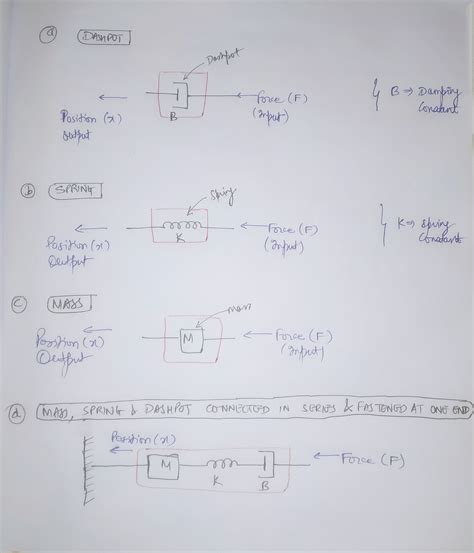 a DASHPOT
Dashpot
Position (x)
Output
B
Force (F)
(Input)
B ⇒ Damping
Constant
b SPRING
Spring
Position (x)
Output
K
Force (F)
(Input)
K ⇒ Spring
Constant
c MASS
mass
Position (x)
Output
M
Force (F)
(Input)
d MASS, SPRING & DASHPOT CONNECTED IN SERIES & FASTENED AT ONE END
Position (x)
M
K
B
Force (F)